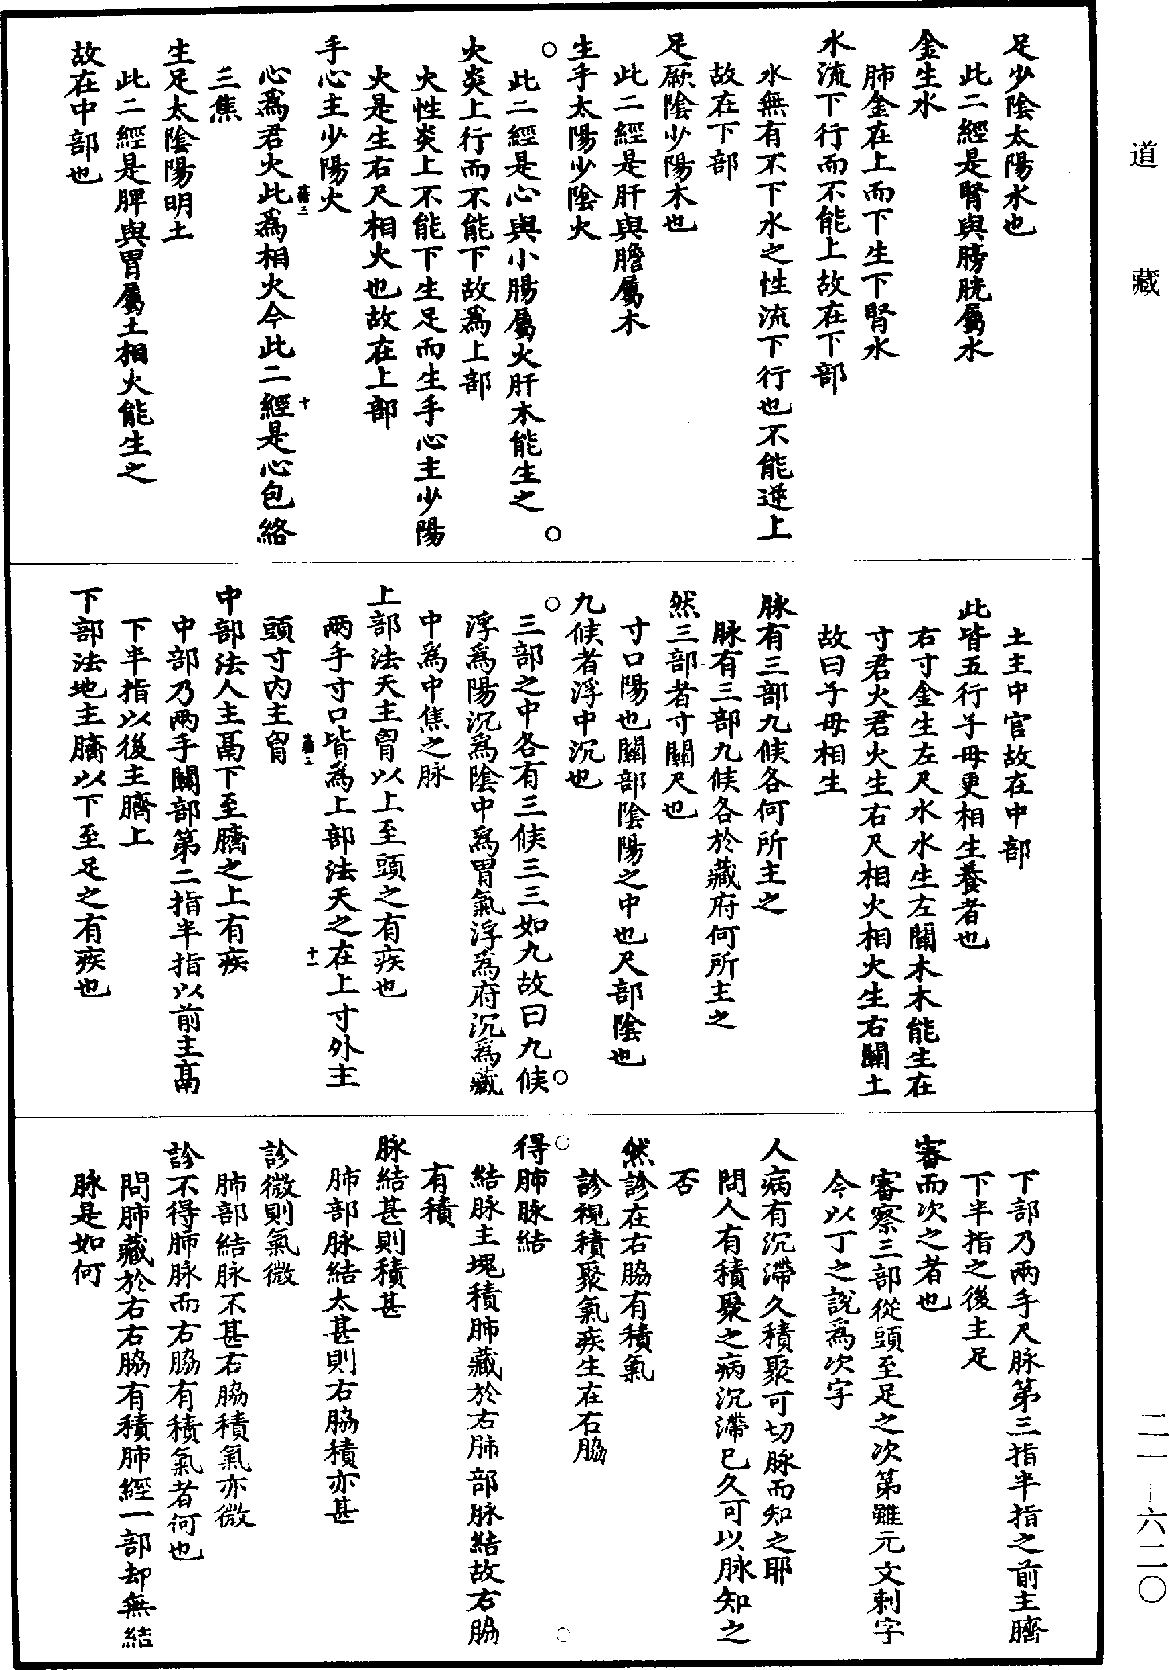 道藏
足少陰太陽水也
此二經是腎與膀胱屬水
金生水
肺金在上而下生下腎水
水流下行而不能上故在下部
水無有不下水之性流下行也不能逆上
故在下部
足厥陰少陽木也
此二經是肝與膽屬木
生手太陽少陰火
此二經是心與小腸屬火肝木能生之
火炎上行而不能下故為上部
火性炎上不能下生足而生手心主少陽
火是生右尺相火也故在上部
手心主少陽火
心為君火此為相火今此二經是心包絡
三焦
生足太陰陽明土
此二經是脾與胃屬土相火能生之
故在中部也
土主中宫故在中部
此皆五行子母更相生養者也
右寸金生左尺水水生左關木木能生在
寸君火君火生右尺相火相火生右關土
故曰子母相生
脉有三部九候各何所主之
脉有三部九候各於藏府何所主之
然三部者寸關尺也
寸口陽也關部陰陽之中也尺部陰也
九候者浮中沉也
三部之中各有三候三三如九故曰九候
浮為陽沉為陰中為胃氣浮為府沉為藏
中為中焦之脉
上部法天主胷以上至頭之有疾也
兩手寸口皆為上部法天之在上寸外主
頭寸内主胷
中部法人主鬲下至臍之上有疾
中部乃兩手關部第二指半指以前主鬲
下半指以後主臍上
下部法地主臍以下至足之有疾也
下部乃兩手尺脉第三指半指之前主臍
下半指之後主足
審而次之者也
審察三部從頭至足之次第雖元文刺字
今以丁之說為次字
人病有沉滯久積聚可切脉而知之耶
問人有積聚之病沉滯已久可以脉知之
否
然診在右脇有積氣
診視積聚氣疾生在右脇
得肺脉結
結脉主塊積肺藏於右肺部脉結故右脇
有積
脉結甚則積甚
肺部脉結太甚則右脇積亦甚
診微則氣微
肺部結脉不甚右脇積氣亦微
診不得肺脉而右脇有積氣者何也
問肺藏於右右脇有積肺經一部却無結
脉是如何
二一－六二〇